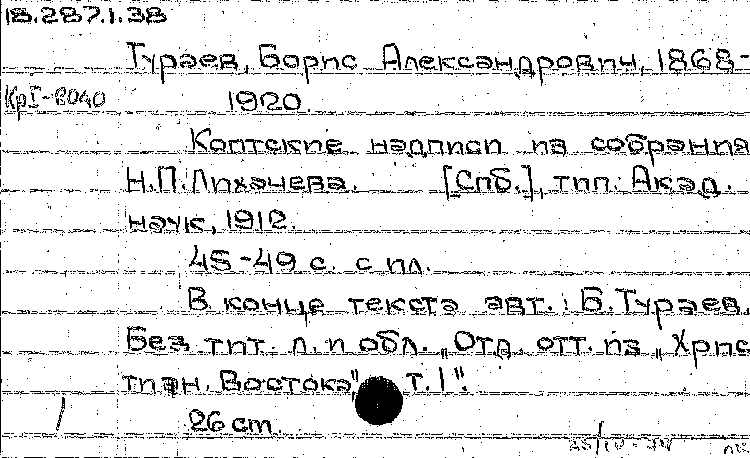 18.287.1.38
Тураев, Борис Александрович, 1868-
КрI-8040 1920.
Коптские надписи из собрания
Н.П.Лихачева. [Спб.], тип. Акад.
наук, 1912.
45-49 с. с пл.
В конце текста авт.: Б.Тураев.
Без тит. л. и обл. „Отд. отт. из „Хрис
тиан. Востока", т. I".
26 cm.